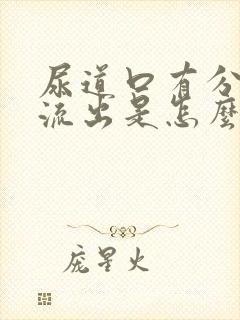 尿道口有分
流出是怎麽
庞星火